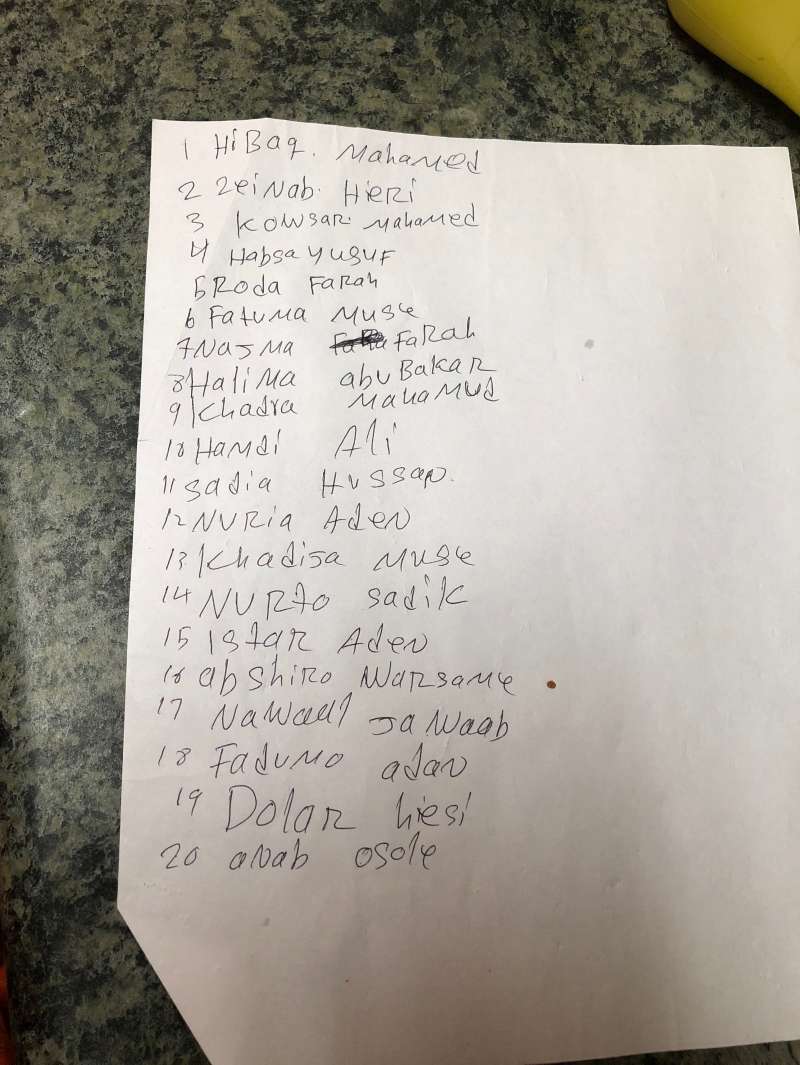 1 HiBaq. Mahamed
2 Zeinab. Hieri
3 Kowsar Mahamed
4 Habsa Yusuf
5 Roda Farah
6 Fatuma Muse
7 Najma Farah
8 Halima abuBakar
9 Khadra Mahamud
10 Hamdi Ali
11 Sadia
12 Nuria Aden
13 Khadija Muse
14 Nurto Sadik
15 Istar Aden
16 abshiro Warsame
17 Nawaal Jawaab
18 Fadumo adan
19 Dolar hiesi
20 anab osole